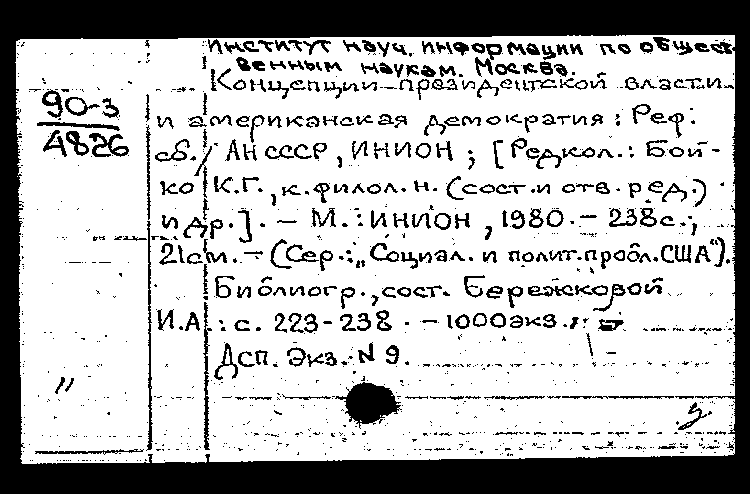 Институт науч. информации по общест-
венным наукам. Москва.
Концепции президентской власти
90-3
4826
и американская демократия: Реф.
сб. / АН СССР, ИНИОН; [Редкол.: Бой-
ко К.Г., к.филол.н. (сост. и отв. ред.)
и др.]. - М.: ИНИОН, 1980. - 238с.;
21см. - (Сер.: „Социал. и полит. пробл. США").
Библиогр., сост. Бережковой
И.А.: с. 223-238. - 1000экз.
Дсп. Экз. N 9.